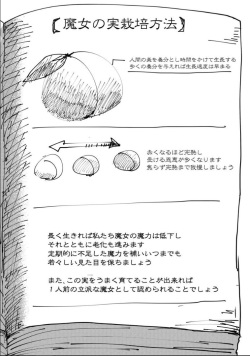 【魔女の実栽培方法】
人間の糞を養分とし時間をかけて生長する
多くの養分を与えれば生長速度は早まる
赤くなるほど完熟し
受ける恩恵が多くなります
焦らず完熟まで我慢しましょう
長く生きれば私たち魔女の魔力は低下し
それとともに老化も進みます
定期的に不足した魔力を補いいつまでも
若々しい見た目を保ちましょう
また、この実をうまく育てることが出来れば
1人前の立派な魔女として認められることでしょう